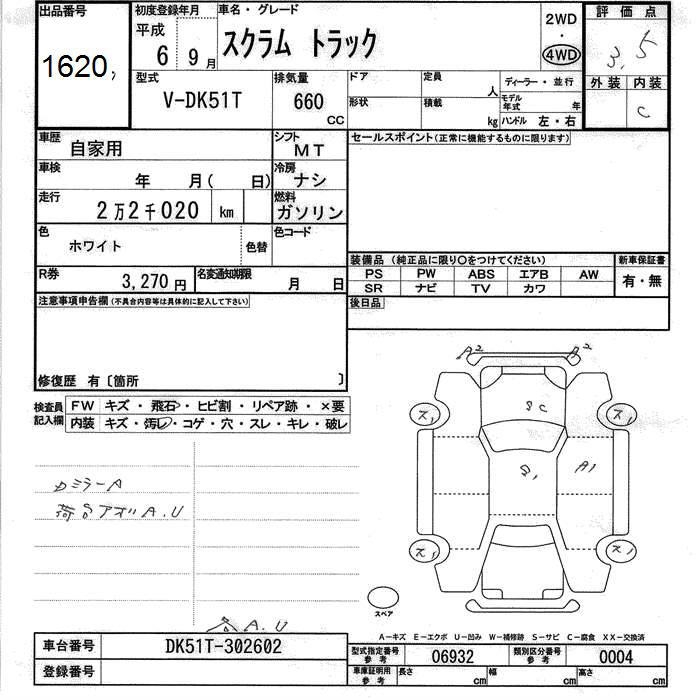 出品番号
1620,
初度登録年月
平成
6 9月
車名・グレード
スクラム トラック
2WD
・
4WD
評価点
3.5
外装 内装
C
型式
V-DK51T
排気量
660
CC
ドア
形状
定員
人
積載
kg
ディーラー・並行
モデル年式 年
ハンドル 左・右
車歴
自家用
シフト
MT
車検
年 月( 日)
冷房
ナシ
走行
2万2千020 km
燃料
ガソリン
色
ホワイト
色替
色コード
R券
3,270円
名変通知期限
月 日
セールスポイント(正常に機能するものに限ります)
装備品 (純正品に限り○をつけてください)
PS PW ABS エアB AW
SR ナビ TV カワ
新車保証書
有・無
後日品
注意事項申告欄(不具合内容等は具体的に記入して下さい)
修復歴 有〔箇所 〕
検査員記入欄
FW キズ・飛石・ヒビ割・リペア跡・×要
内装 キズ・汚し・コゲ・穴・スレ・キレ・破レ
A2 A2
SC
ス1 ス1
S1 A1
ス1 ス1
スペア
カミラーA
荷台アオリA.U
A.U
A－キズ E－エクボ U－凹み W－補修跡 S－サビ C－腐食 XX－交換済
車台番号
DK51T-302602
登録番号
型式指定番号
参考
06932
類別区分番号
参考
0004
車庫証明用
参考
長さ cm
幅 cm
高さ cm